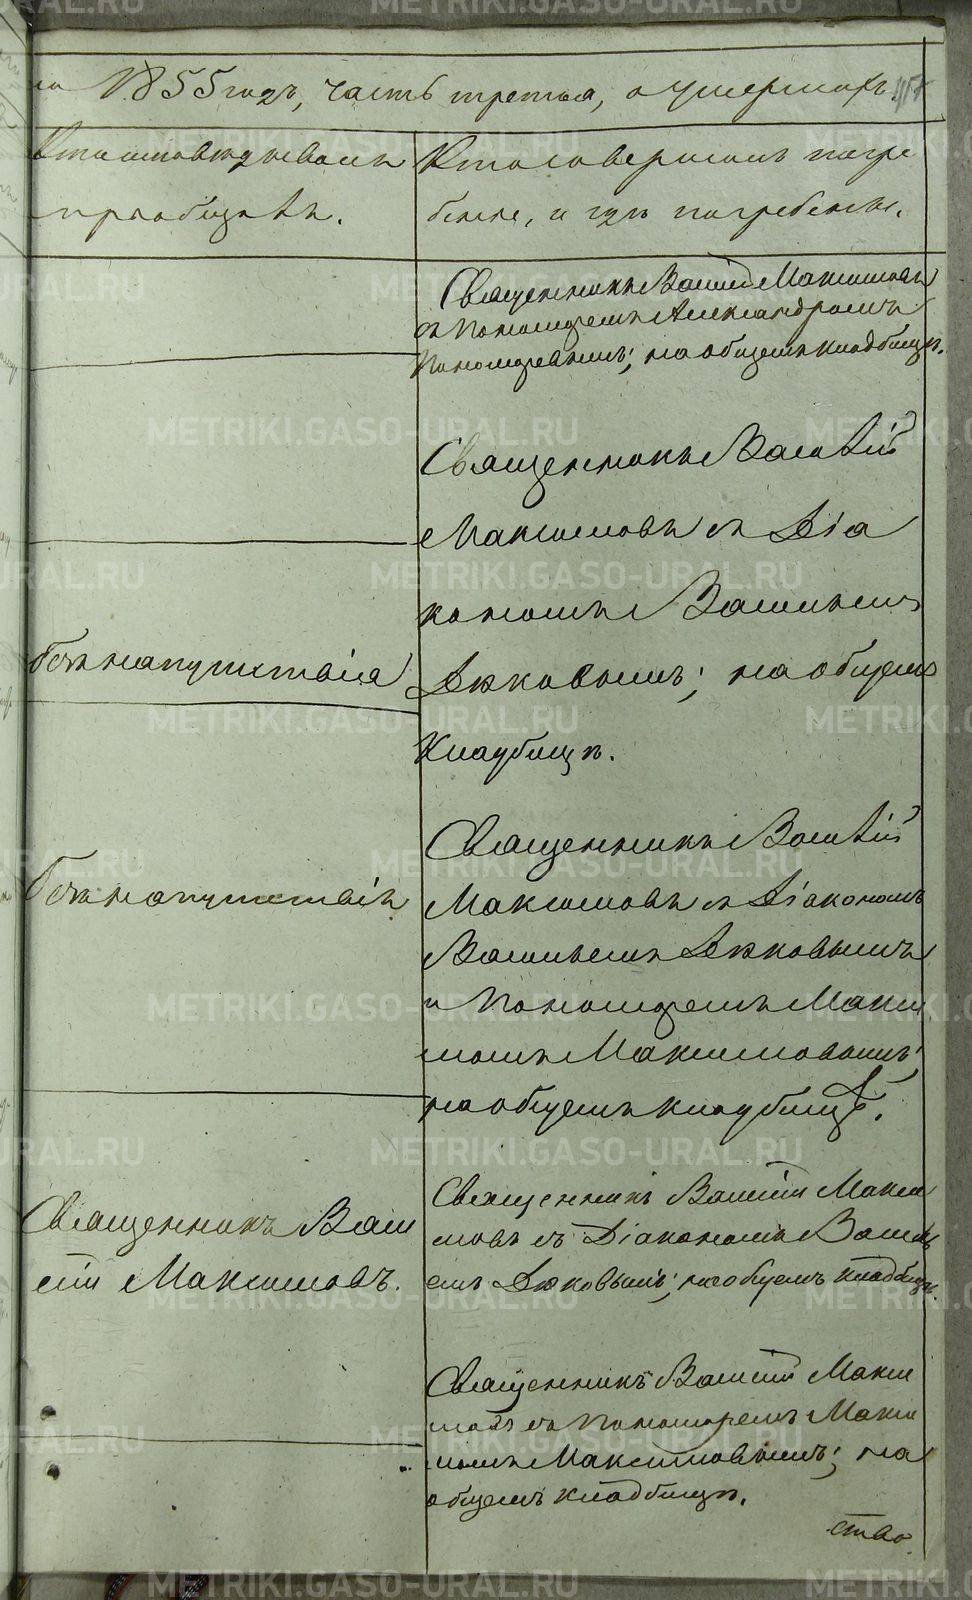 на 1855 годъ, часть третья, о умершихъ.
Кто исповѣдывалъ
и пріобщалъ.
Кто совершалъ погре
беніе, и гдѣ погребены.
Священникъ Василій Максимовъ
съ Пономаремъ Александромъ
Пономаревымъ; на общемъ кладбищѣ.
Священникъ Василій
Максимовъ съ Діа
кономъ Васильемъ
безъ напутствія
Дьяковымъ; на общемъ
Кладбищѣ.
Священникъ Василій
безъ напутствія
Максимовъ съ Діакономъ
Васильемъ Дьяковымъ
и Пономаремъ Макси
момъ Максимовымъ;
на общемъ кладбищѣ.
Священникъ Васи
лій Максимовъ.
Священникъ Василій Макси
мовъ съ Діакономъ Василь
емъ Дьяковымъ; на общемъ кладбищѣ.
Священникъ Василій Макси
мовъ съ Пономаремъ Макси
момъ Максимовымъ; на
общемъ кладбищѣ.
ство
METRIKI.GASO-URAL.RU